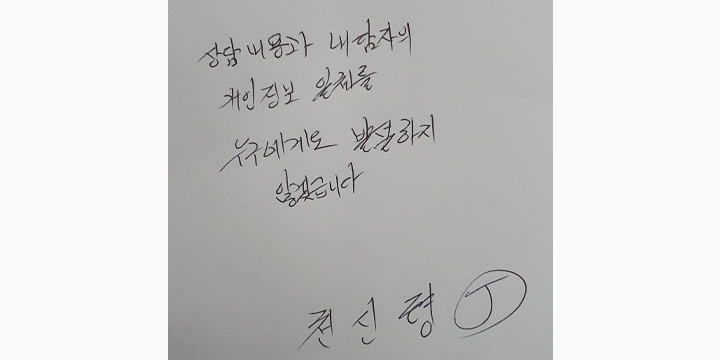 상담 내용과 내담자의
개인정보 일체를
누구에게도 발설하지
않겠습니다
천신령 J